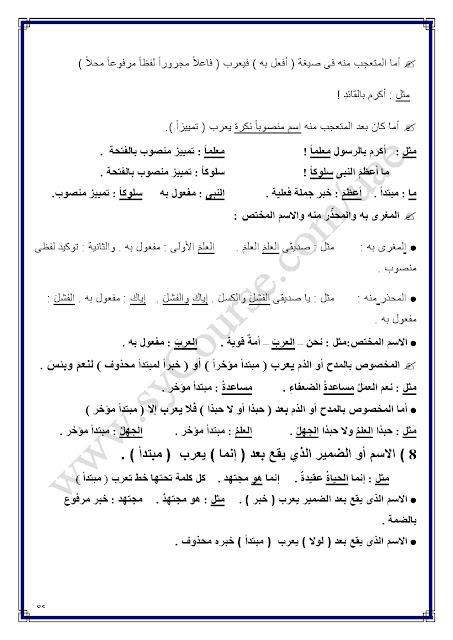 أما المتعجب منه فى صيغة ( أفعل به ) فيعرب ( فاعلاً مجروراً لفظاً مرفوعاً محلاً )
مثل : أكرم بالقائد !
أما كان بعد المتعجب منه اسم منصوباً نكرة يعرب ( تمييزاً ).
مثل : أكرم بالرسول معلماً ! معلماً : تمييز منصوب بالفتحة .
ما أعظمَ النبى سلوكاً ! سلوكاً : تمييز منصوب بالفتحة .
ما : مبتدأ . أعظم : خبر جملة فعلية . النبى : مفعول به سلوكاً : تمييز منصوب.
المغرى به والمحذر منه والاسم المختص :
● المغرى به : مثل : صديقى العلمَ العلمَ . العلمَ الأولى : مفعول به . والثانية : توكيد لفظى
منصوب .
● المحذر منه : مثل : يا صديقى الفشلَ والكسل . إياك والفشلَ . إياك : مفعول به . الفشلَ :
مفعول به .
● الاسم المختص :مثل : نحن – العربَ – أمةٌ قوية . العربَ : مفعول به .
المخصوص بالمدح أو الذم يعرب ( مبتدأ مؤخراً ) أو ( خبراً لمبتدأ محذوف ) لنعمَ وبئسَ .
مثل : نعم العملُ مساعدةُ الضعفاءِ . مساعدةُ : مبتدأ مؤخر .
● أما المخصوص بالمدح أو الذم بعد ( حبذا أو لا حبذا ) فلا يعرب إلا ( مبتدأ مؤخر )
مثل : حبذا العلمُ ولا حبذا الجهلُ . العلمُ : مبتدأ مؤخر . الجهلُ : مبتدأ مؤخر .
8 ) الاسم أو الضمير الذي يقع بعد ( إنما ) يعرب ( مبتدأ ) .
مثل : إنما الحياةُ عقيدةٌ . إنما هو مجتهد . كل كلمة تحتها خط تعرب ( مبتدأ )
● الاسم الذى يقع بعد الضمير يعرب ( خبر ) . مثل : هو مجتهدٌ . مجتهد : خبر مرفوع
بالضمة .
● الاسم الذى يقع بعد ( لولا ) يعرب ( مبتدأ ) خبره محذوف .
www.syCourse.com/uae